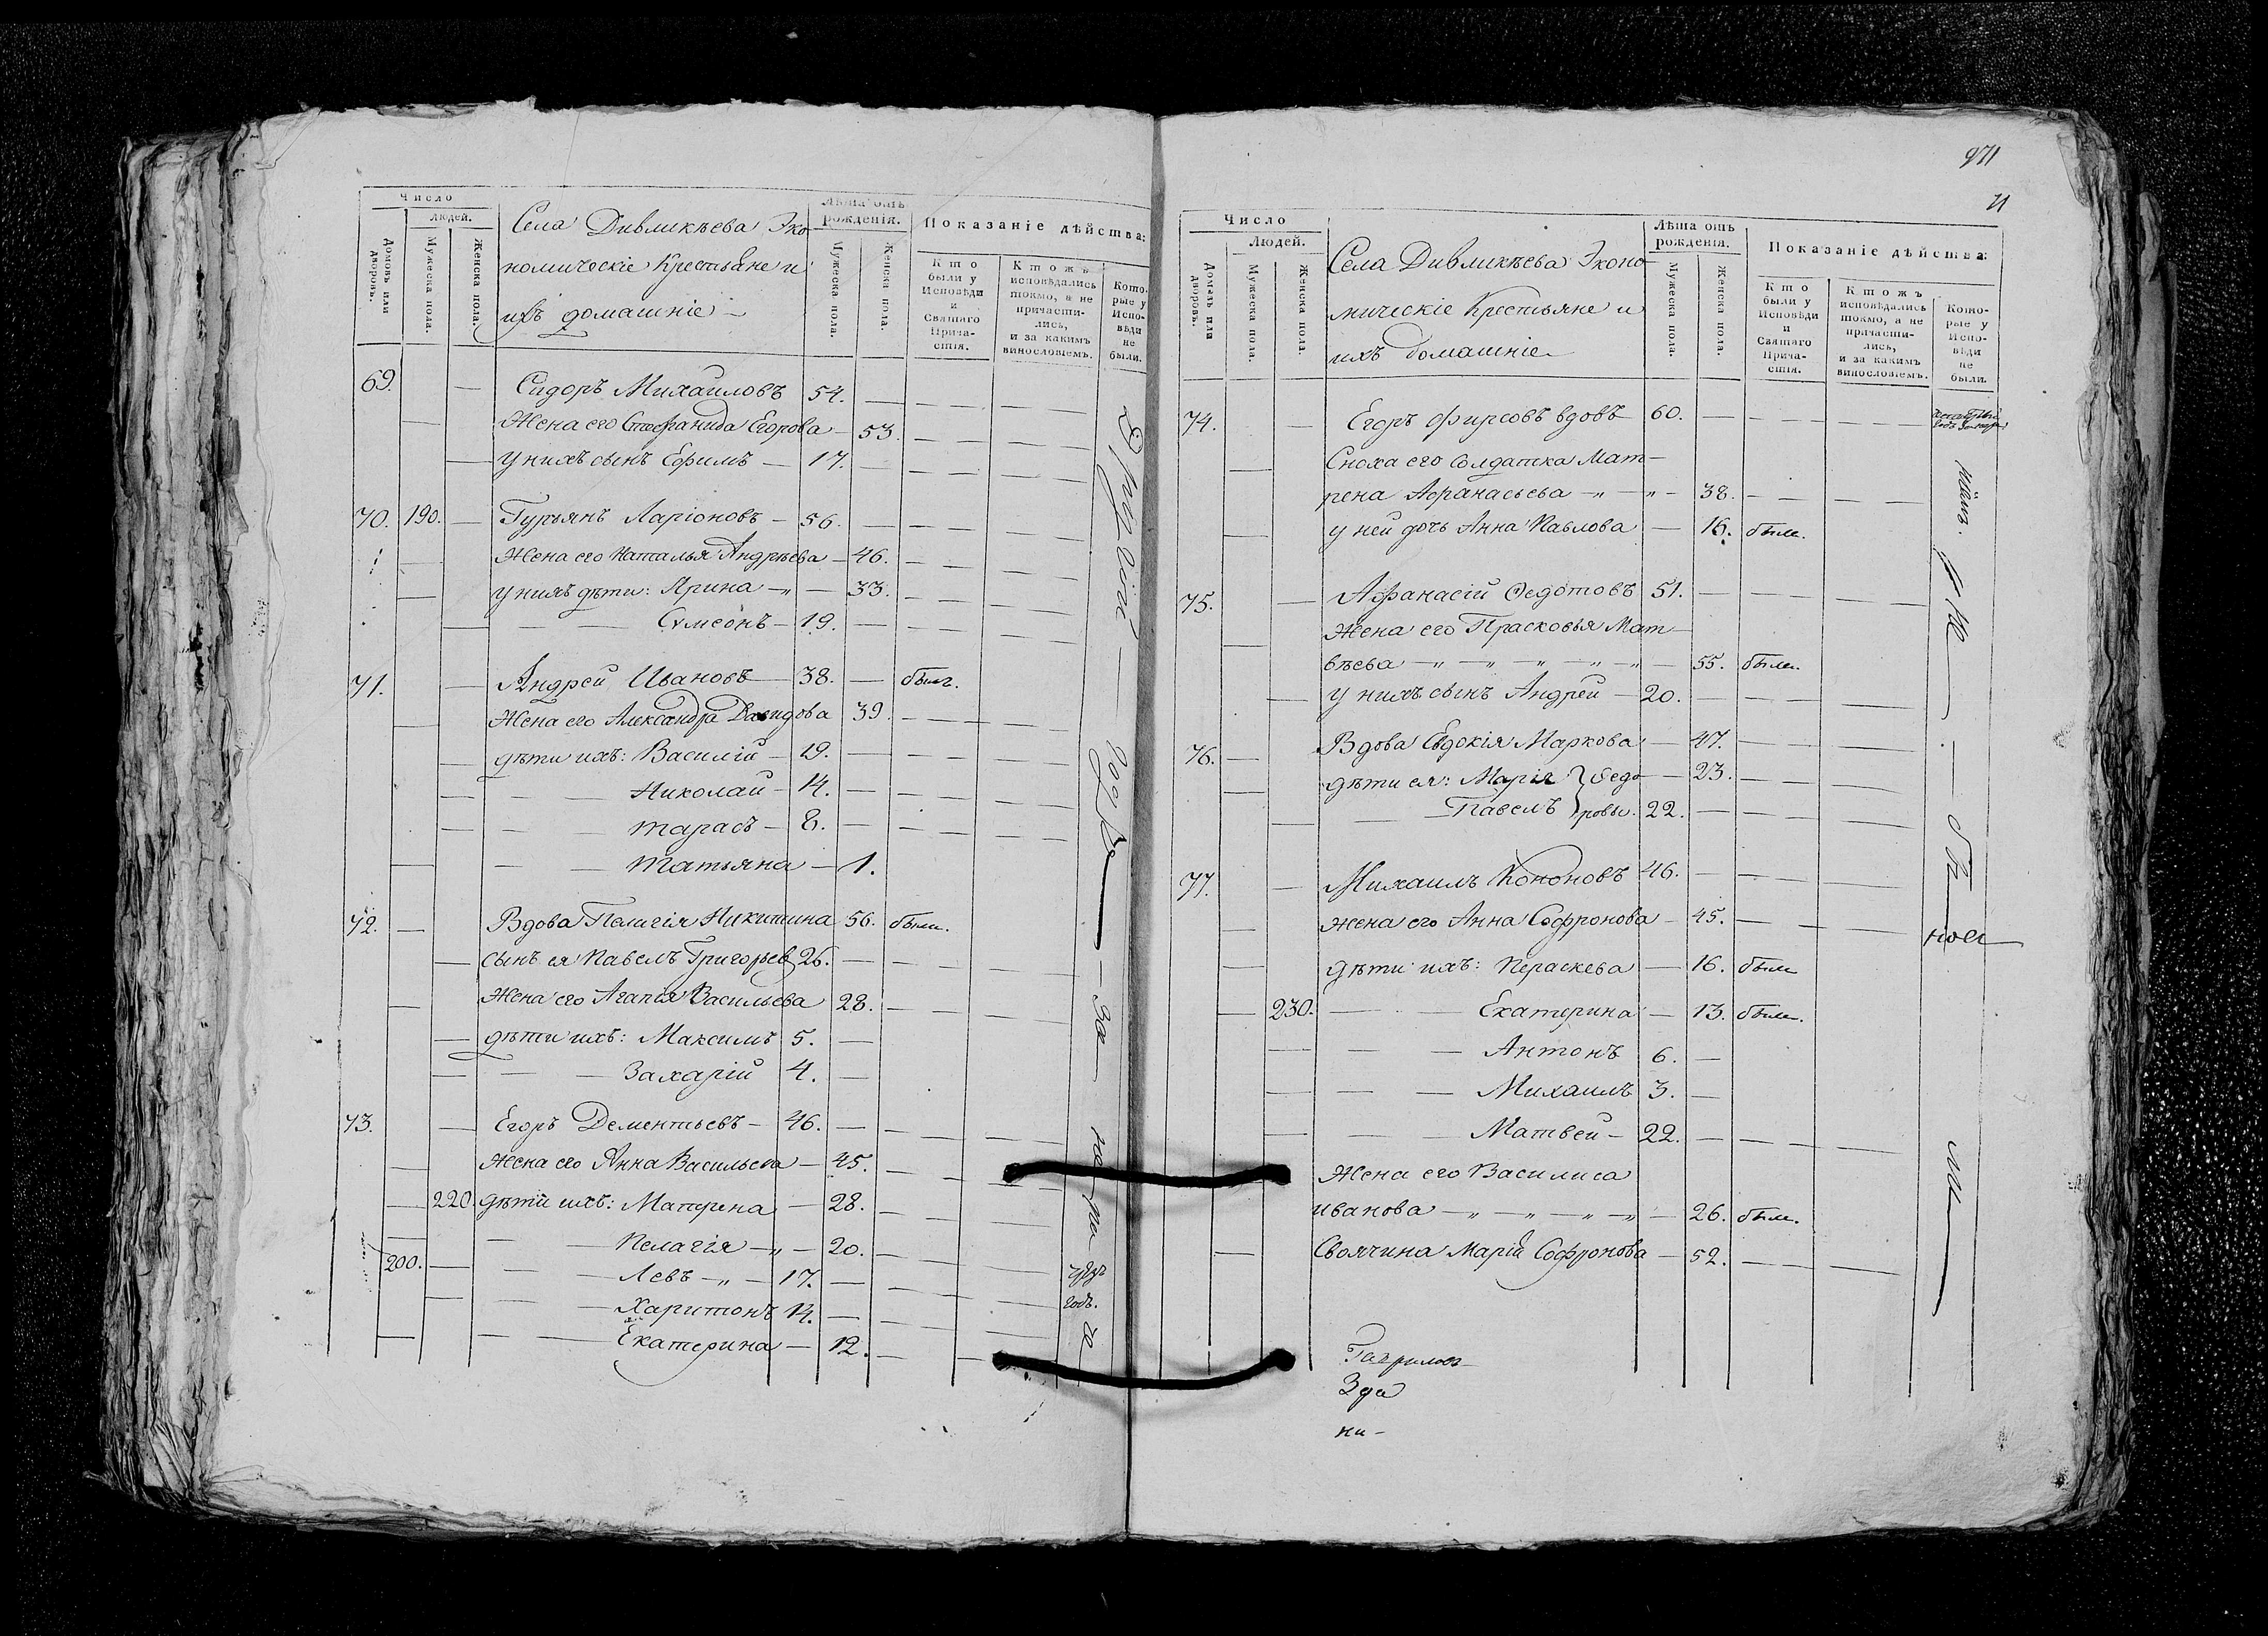 Число
Людей.
Домовъ или дворовъ.
Мужеска пола.
Женска пола.
Села Дивликѣева Эко
номическіе Крестьяне и
ихъ домашніе
Лѣта отъ рожденія.
Мужеска пола.
Женска пола.
Показаніе дѣйства:
Кто были у Исповѣди и Святаго Прича- стія.
Ктожъ исповѣдались токмо, а не причасти- лись, и за какимъ винословіемъ.
Кото- рые у Испо- вѣди не были.
69. Сидоръ Михайловъ 54.
Жена его Стефанида Егорова 53.
у нихъ сынъ Ефимъ 17.
70. 190. Гурьянъ Ларіоновъ 56.
Жена его Наталья Андрѣева 46.
у нихъ дѣти: Ярина 33.
Сѵмеонъ 19.
71. Андрей Ивановъ 38. былъ.
Жена его Александра Давидова 39.
дѣти ихъ: Василій 19.
Николай 14.
Тарасъ 8.
Татьяна 1.
72. Вдова Пелагія Никитина 56. были.
сынъ ея Павелъ Григорьев 26.
Жена его Агапія Васильева 28.
дѣти ихъ: Максимъ 5.
Захарій 4.
73. Егоръ Дементьевъ 46.
Жена его Анна Васильева 45.
220. дѣти ихъ: Матрена 28.
Пелагія 20.
200. Левъ 17.
Харитонъ 14.
Екатерина 12.
971
Число
Людей.
Домовъ или дворовъ.
Мужеска пола.
Женска пола.
Села Дивликѣева Эконо
мическіе Крестьяне и
ихъ домашніе
Лѣта отъ рожденія.
Мужеска пола.
Женска пола.
Показаніе дѣйства:
Кто были у Исповѣди и Святаго Прича- стія.
Ктожъ исповѣдались токмо, а не причасти- лись, и за какимъ винословіемъ.
Кото- рые у Испо- вѣди не были.
74. Егоръ Фирсовъ вдовъ 60.
Сноха его солдатка Мат
рена Афанасьева 38.
у ней дочь Анна Павлова 16. были.
75. Афанасій Ѳедотовъ 51.
Жена его Прасковья Мат
вѣева 55. были.
у нихъ сынъ Андрей 20.
76. Вдова Евдокія Маркова 47.
дѣти ея: Марія } Ѳедо 23.
Павелъ } ровы. 22.
77. Михаилъ Кононовъ 46.
Жена его Анна Софронова 45.
дѣти ихъ: Пераскева 16. были
230. Екатерина 13. были.
Антонъ 6.
Михаилъ 3.
Матвей 22.
Жена его Василиса
Иванова 26. были.
Своячина Марія Софронова 52.